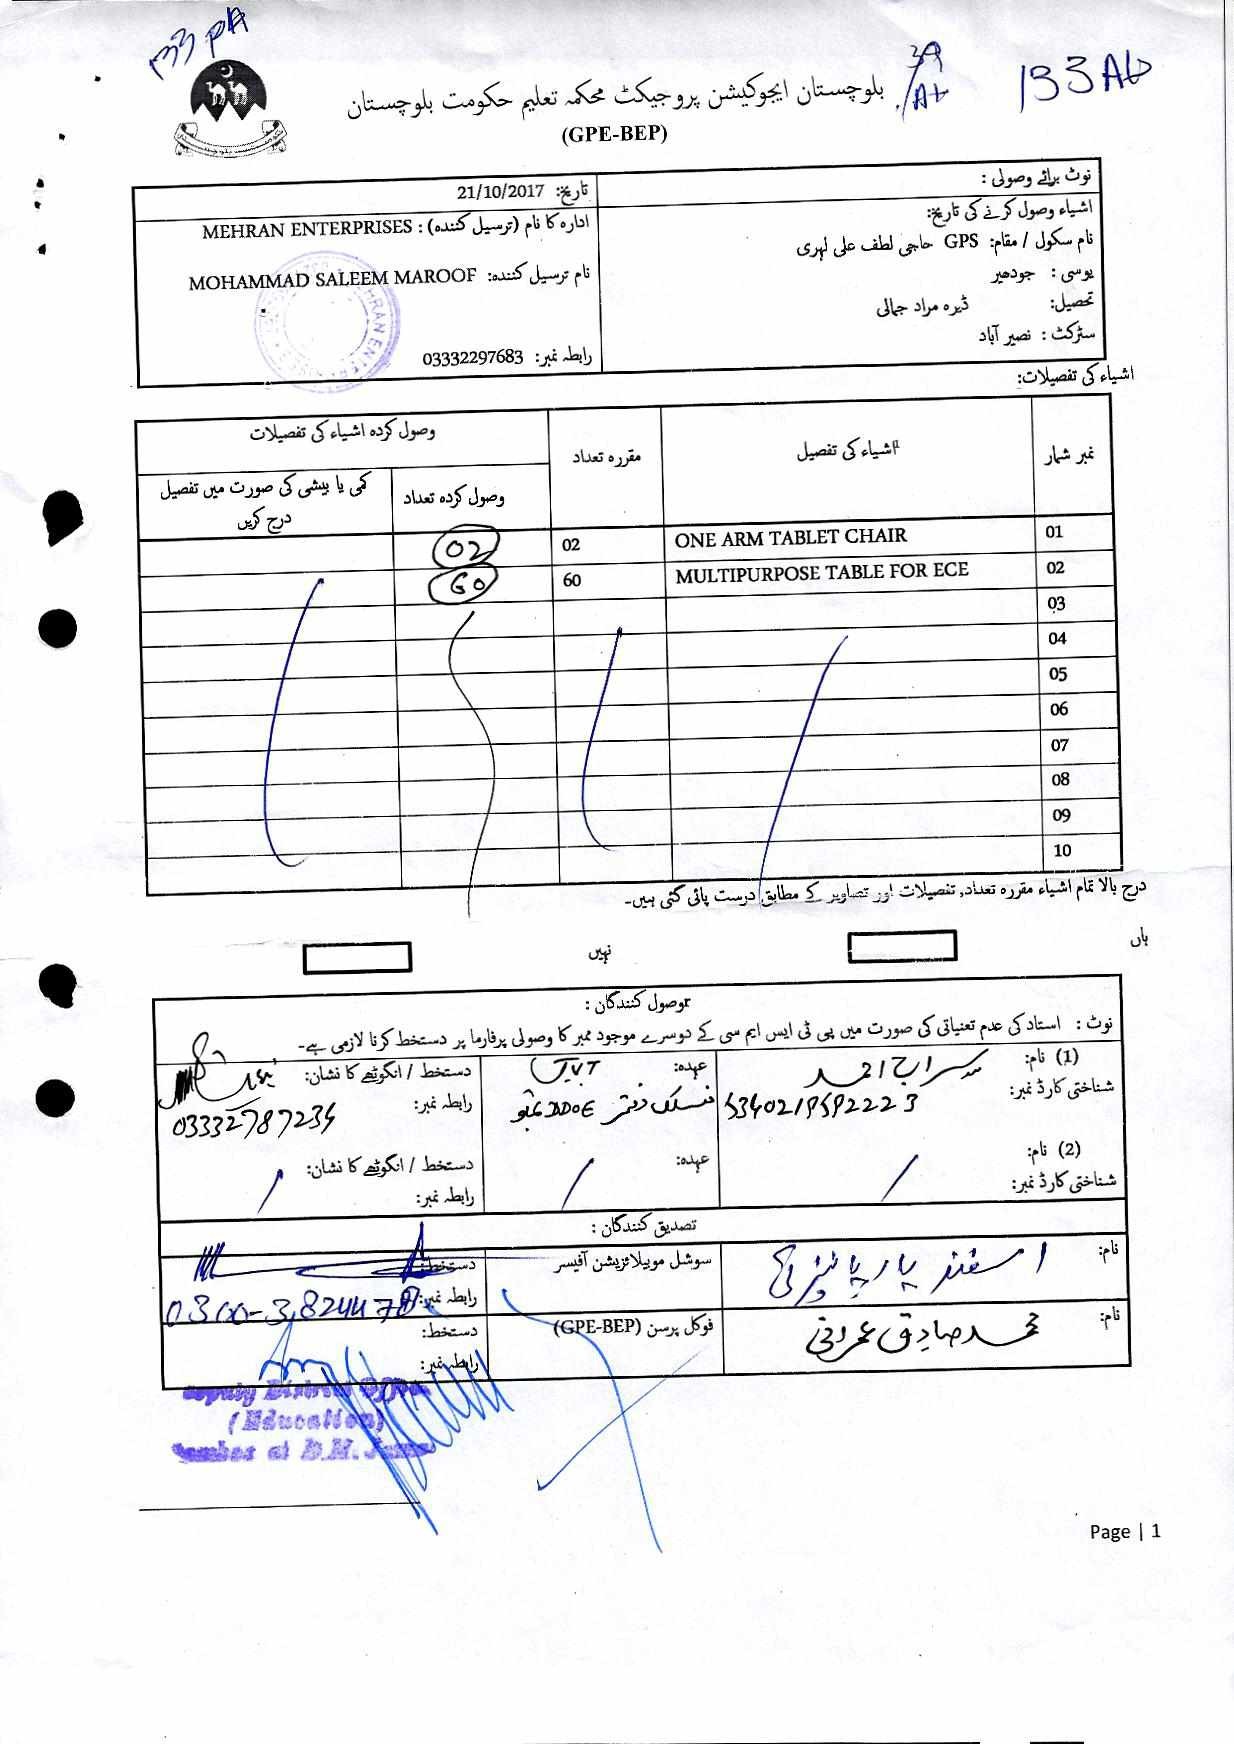 33 PA
39/Ab
133 Ab
بلوچستان ایجوکیشن پروجیکٹ محکمہ تعلیم حکومت بلوچستان
(GPE-BEP)
نوٹ برائے وصولی :
تاریخ: 21/10/2017
اشیاء وصول کرنے کی تاریخ:
ادارہ کا نام (ترسیل کنندہ) : MEHRAN ENTERPRISES
نام سکول / مقام: GPS حاجی لطف علی لہری
نام ترسیل کنندہ: MOHAMMAD SALEEM MAROOF
یوسی : جودھیر
تحصیل: ڈیرہ مراد جمالی
سٹرکٹ : نصیر آباد
رابطہ نمبر: 03332297683
اشیاء کی تفصیلات:
نمبر شمار اشیاء کی تفصیل مقررہ تعداد وصول کردہ اشیاء کی تفصیلات
وصول کردہ تعداد کمی یا بیشی کی صورت میں تفصیل درج کریں
01 ONE ARM TABLET CHAIR 02 02
02 MULTIPURPOSE TABLE FOR ECE 60 60
03
04
05
06
07
08
09
10
درج بالا تمام اشیاء مقررہ تعداد, تفصیلات اور تصاویر کے مطابق درست پائی گئی ہیں۔
ہاں نہیں
وصول کنندگان :
نوٹ : استاد کی عدم تعنیاتی کی صورت میں پی ٹی ایس ایم سی کے دوسرے موجود ممبر کا وصولی پرفارما پر دستخط کرنا لازمی ہے۔
(1) نام: سراج احمد عہدہ: JVT دستخط / انگوٹھے کا نشان:
شناختی کارڈ نمبر: 5340219592223 DDOE رابطہ نمبر: 03332787234
(2) نام: عہدہ: دستخط / انگوٹھے کا نشان:
شناختی کارڈ نمبر: رابطہ نمبر:
تصدیق کنندگان :
نام: اسفند یار سوشل موبیلائزیشن آفیسر دستخط:
رابطہ نمبر: 0300-3824478
نام: محمد صادق عمرانی فوکل پرسن (GPE-BEP) دستخط:
رابطہ نمبر:
Deputy District Officer
(Education)
Page | 1